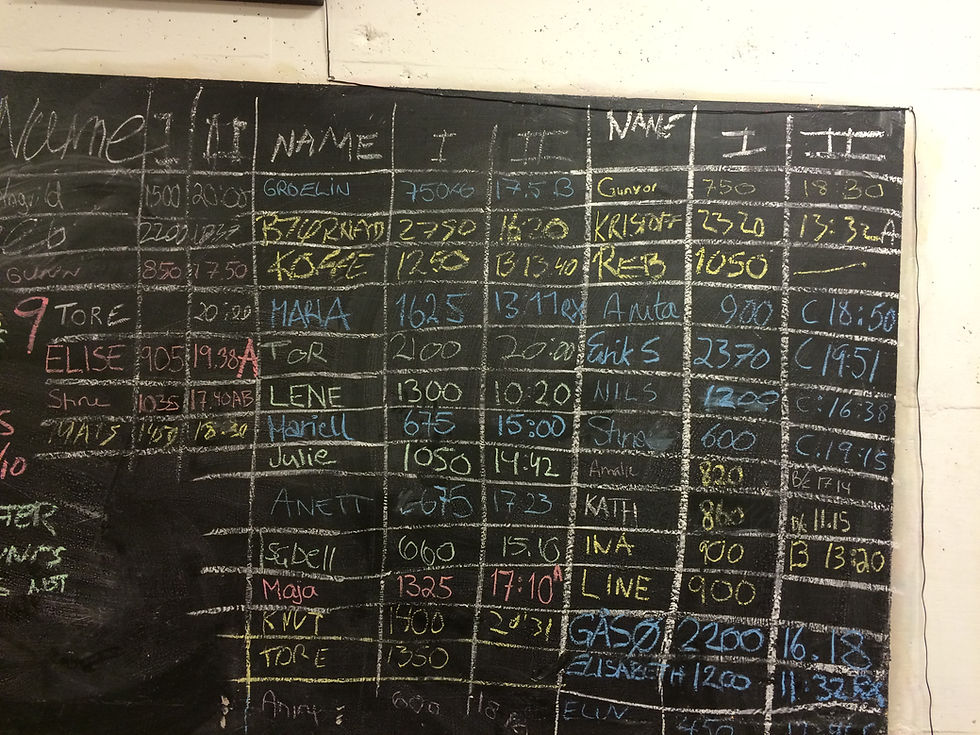 Name I II NAME I II NAME I II
1500 20:05 GROELIN 750KG 17.5.B Gunvor 750 18:30
2750 16:20 KRISTOFF 2320 13:32A
GUNN 850 17:50 KOFFE 1250 B 13 40 REB 1050 —
9 TORE 20:20 MARIA 1625 13:11 RX Anita 900 C 18:50
ELISE 905 19.38 A TOR 2100 20:00 Erik S 2370 C 19:51
Stine 1035 17.40AB LENE 1300 10:20 NILS 1200 C:16:38
MATS 18:30 Mariell 675 15:00 Stine 600 C.19:15
/10 Julie 1050 14:42 Amalie 820 17 14
ANETT 675 17.23 KATH 860 11.15
660 15.10 INA 900 B 13:20
NOT Maja 1325 17:10 A LINE 900
KNUT 1400 20:31 GÅSØ 2200 16.18
TORE 1350 ELISABETH 1200 11:32
600 18 ELIN 450